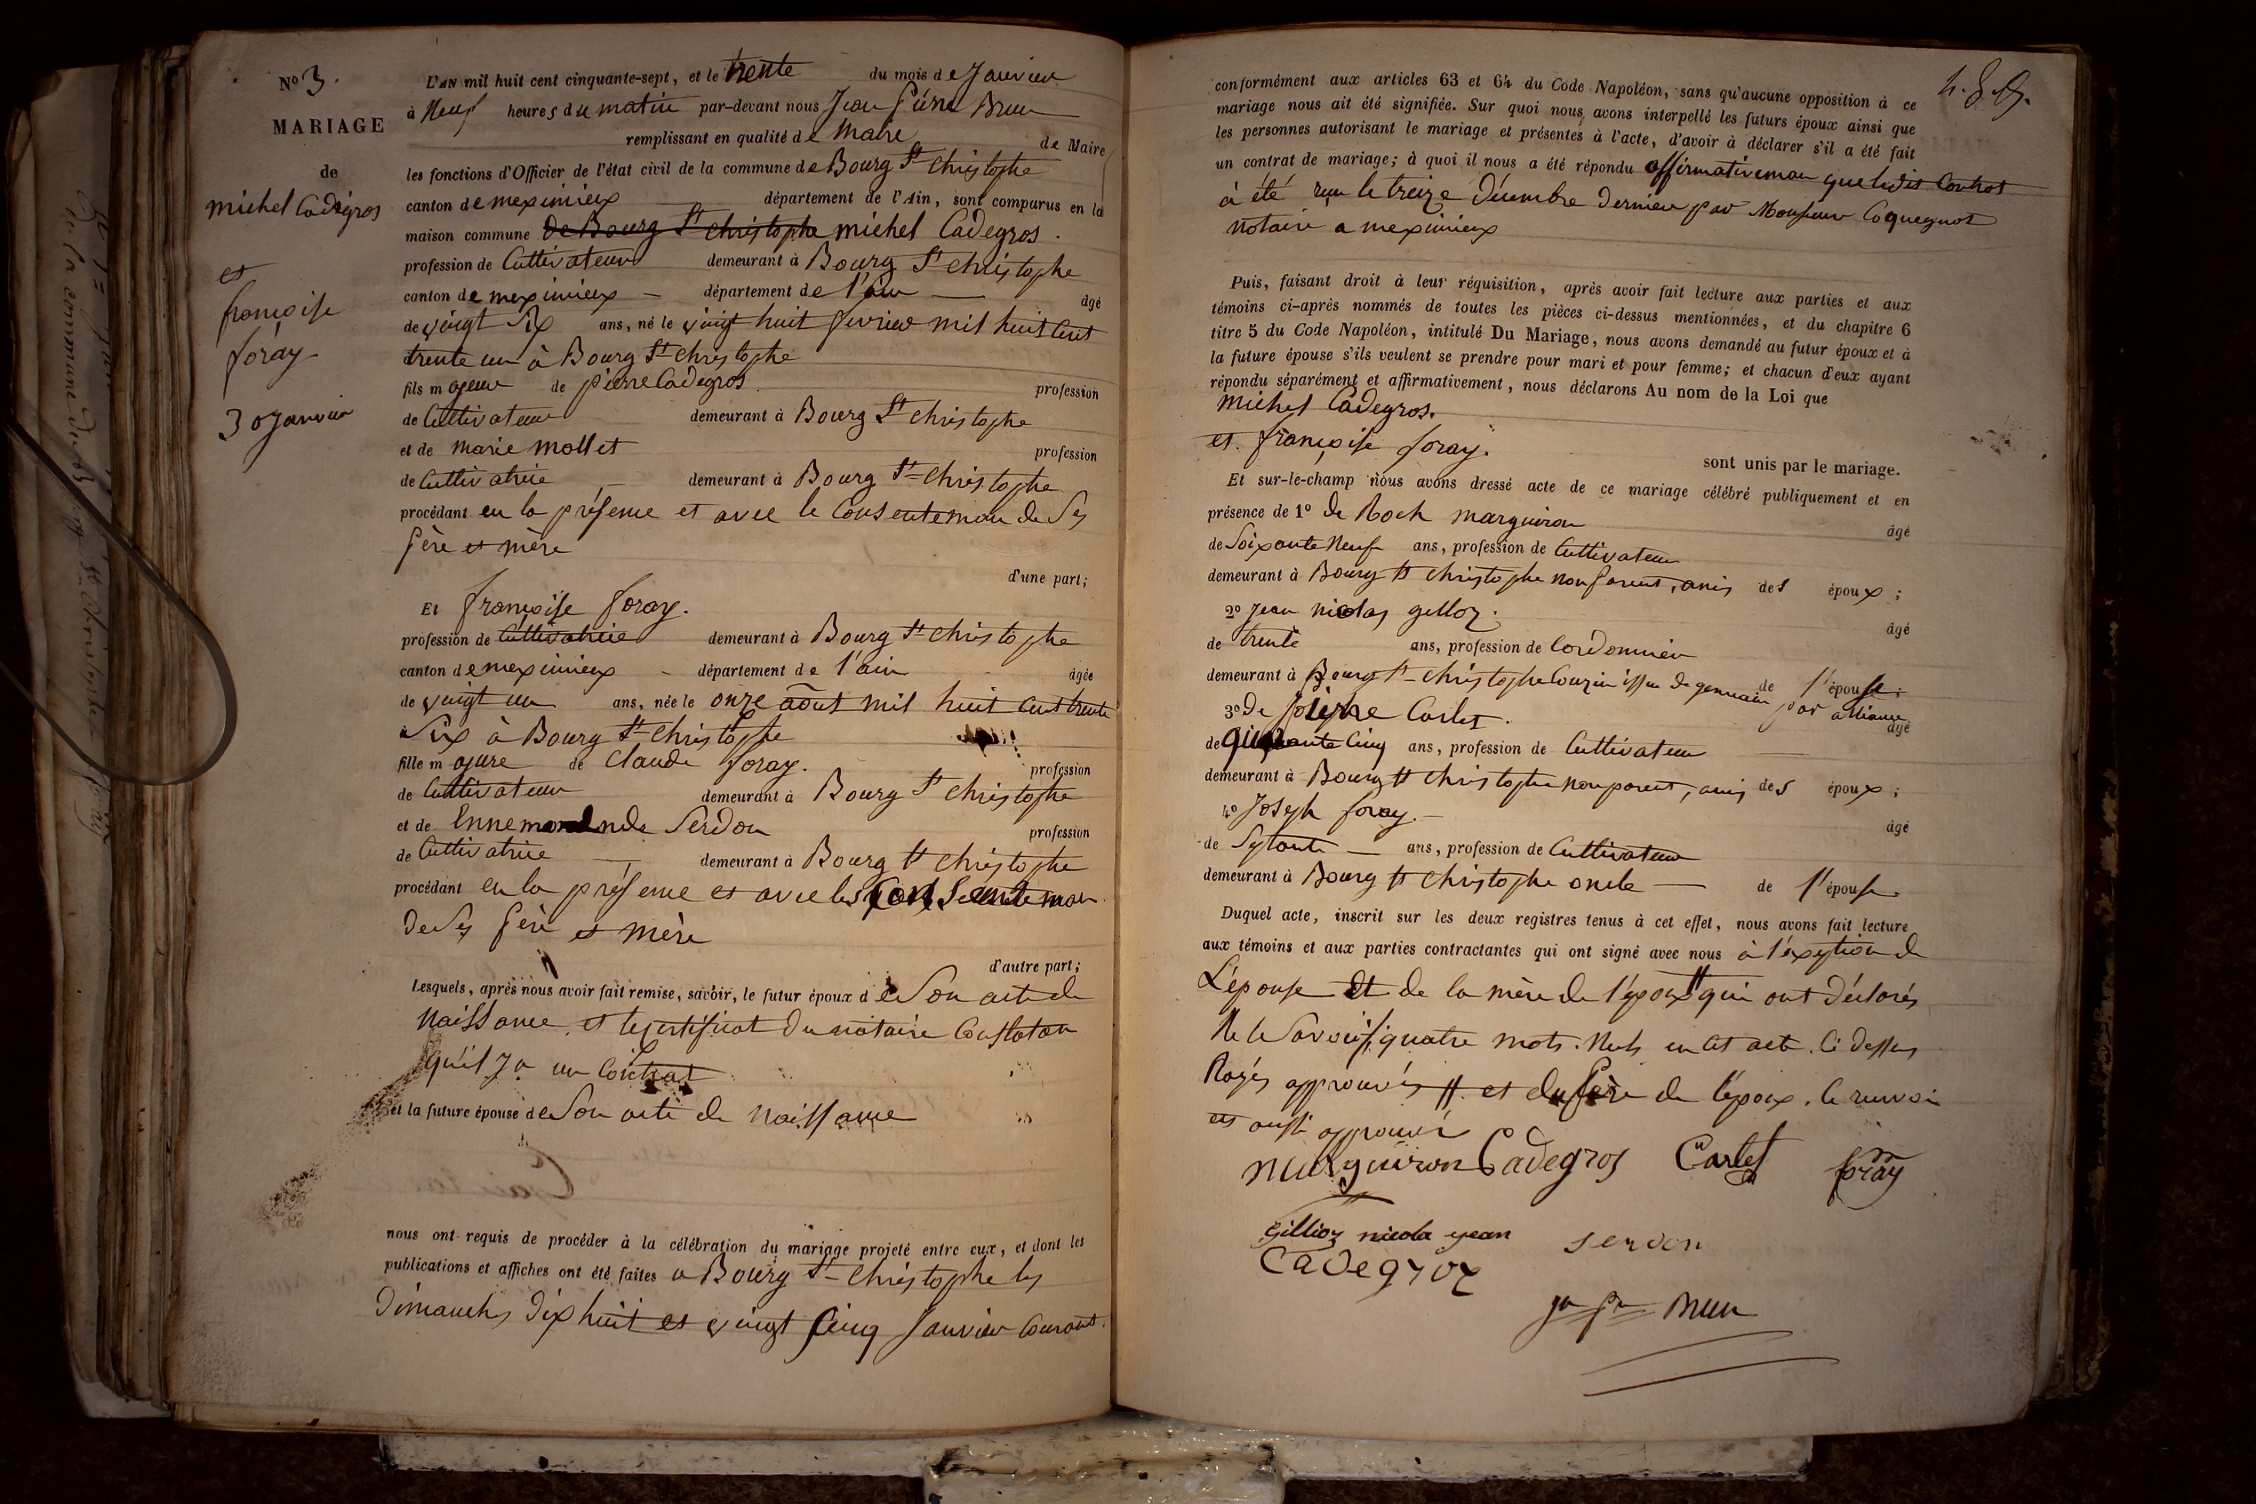 No 3.
MARIAGE
de
michel Cadegros
et
françoise
foray
30 Janvier
L'AN mil huit cent cinquante-sept, et le trente du mois de Janvier
à Neuf heures du matin par-devant nous Jean Piérre Brun
remplissant en qualité de Maire de Maire
les fonctions d'Officier de l'état civil de la commune de Bourg St christophe
canton de meximieux département de l'Ain, sont comparus en la
maison commune de Bourg St christophe michel Cadegros.
profession de Cultivateur demeurant à Bourg St christophe
canton de meximieux département de l'ain âgé
de vingt six ans, né le vingt huit fevrier mil huit cent
trente un à Bourg St christophe
fils majeur de pierre Cadegros profession
de Cultivateur demeurant à Bourg St christophe
et de marie mollet profession
de Cultivatrice demeurant à Bourg St christophe
procédant en la présence et avec le Consenteman de Ses
père et mère
d'une part;
Et françoise foray.
profession de Cultivatrice demeurant à Bourg St christophe
canton de meximieux département de l'ain âgée
de vingt un ans, née le onze août mil huit cent trente
Six à Bourg St christophe
fille majure de Claude foray. profession
de Cultivateur demeurant à Bourg St christophe
et de Ennemonde Serdon profession
de Cultivatrice demeurant à Bourg St christophe
procédant en la présence et avec les Consenteman
de Ses père et mère
d'autre part;
Lesquels, après nous avoir fait remise, savoir, le futur époux de Son acte de
Naissance et le certificat du notaire Constatan
qu'il y a un Contrat
et la future épouse de Son acte de Naissance
nous ont requis de procéder à la célébration du mariage projeté entre eux, et dont les
publications et affiches ont été faites a Bourg St christophe les
Dimanches dix huit et vingt cinq Janvier Courant.
conformément aux articles 63 et 64 du Code Napoléon, sans qu'aucune opposition à ce
mariage nous ait été signifiée. Sur quoi nous avons interpellé les futurs époux ainsi que
les personnes autorisant le mariage et présentes à l'acte, d'avoir à déclarer s'il a été fait
un contrat de mariage; à quoi il nous a été répondu affirmativeman que ledit Contrat
à été reçu le treize Décembre dernier par Monsieur Coquegniot
notaire a meximieux
Puis, faisant droit à leur réquisition, après avoir fait lecture aux parties et aux
témoins ci-après nommés de toutes les pièces ci-dessus mentionnées, et du chapitre 6
titre 5 du Code Napoléon, intitulé Du Mariage, nous avons demandé au futur époux et à
la future épouse s'ils veulent se prendre pour mari et pour femme; et chacun d'eux ayant
répondu séparément et affirmativement, nous déclarons Au nom de la Loi que
Michel Cadegros.
et françoise foray.
sont unis par le mariage.
Et sur-le-champ nous avons dressé acte de ce mariage célébré publiquement et en
présence de 1° de Roch marguiron âgé
de Soixante Neuf ans, profession de Cultivateur
demeurant à Bourg St christophe non parent, amis des époux;
2° Jean nicolas gilloz. âgé
de trente ans, profession de Cordonnier
demeurant à Bourg St christophe Couzin issu de germain de l'épouse;
par alliance
3° de Carlet. âgé
de quarante Cinq ans, profession de Cultivateur
demeurant à Bourg St christophe non parent, amis des époux;
4° Joseph foray. âgé
de Septante ans, profession de Cultivateur
demeurant à Bourg St christophe oncle de l'épouse.
Duquel acte, inscrit sur les deux registres tenus à cet effet, nous avons fait lecture
aux témoins et aux parties contractantes qui ont signé avec nous à l'exeption de
L'épouse et de la mère de l'époux // qui ont déclarés
Ne le Savoir, quatre mots Nuls en cet acte Ci dessus
Rayés approuvés // et du père de l'époux, le renvoi
est ausi approuvé
marguiron Cadegros Carlet foray
gillioz nicola jean serdon
Cadegroz
jn pre Brun